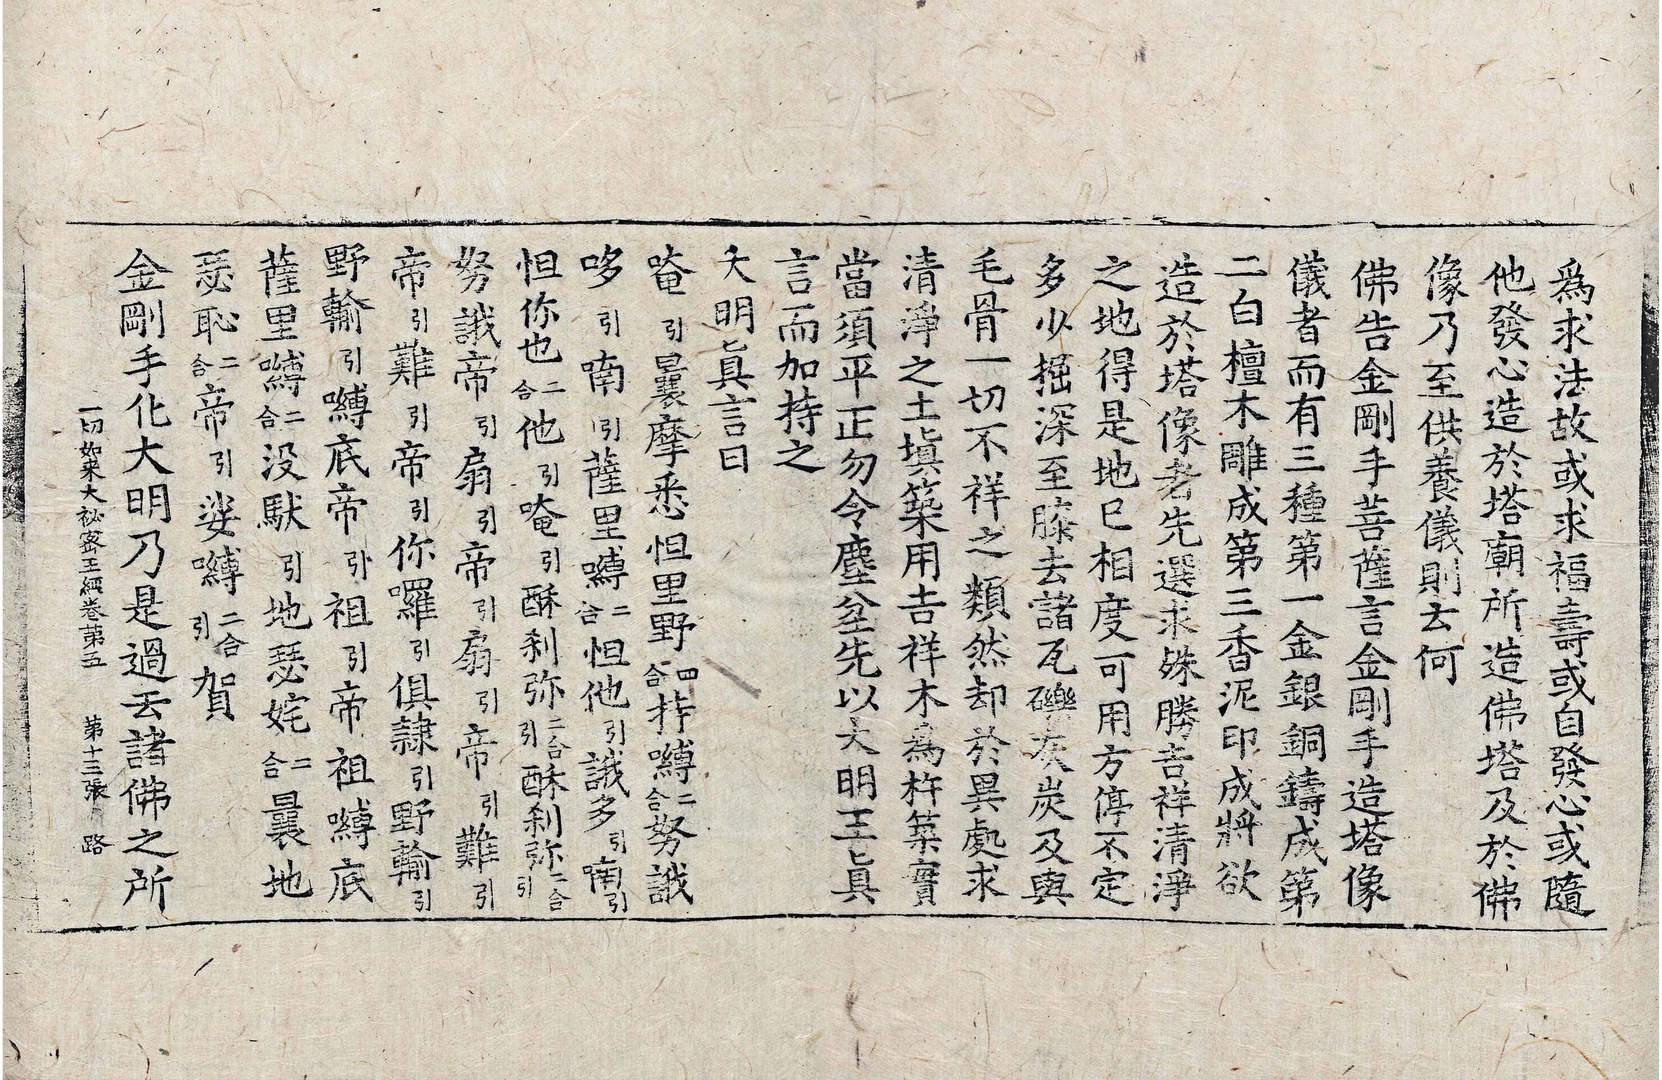 爲求法故或求福壽或自發心或隨
他發心造於塔廟所造佛塔及於佛
像乃至供養儀則云何
佛告金剛手菩薩言金剛手造塔像
儀者而有三種第一金銀銅鑄成第
二白檀木雕成第三香泥印成將欲
造於塔像者先選求殊勝吉祥清淨
之地得是地已相度可用方停不定
多少掘深至膝去諸瓦礫灰炭及與
毛骨一切不祥之類然却於異處求
清淨之土塡築用吉祥木爲杵築實
當須平正勿令塵坌先以大明王眞
言而加持之
大明眞言曰
唵引曩摩悉怛里野四合持嚩二合努誐
哆引喃引薩里嚩二合怛他引誐多引喃引
怛你也二合他引唵引酥刹弥二合引酥刹弥二合引
努誐帝引扇引帝引扇引帝引難引
帝引難引帝引你囉引俱隷引野輸引
野輸引嚩底帝引祖引帝祖嚩底
薩里嚩二合没馱引地瑟姹二合曩地
瑟恥二合帝引娑嚩二合引賀
一切如来大祕密王經卷第五 第十三張 路
金剛手化大明乃是過去諸佛之所